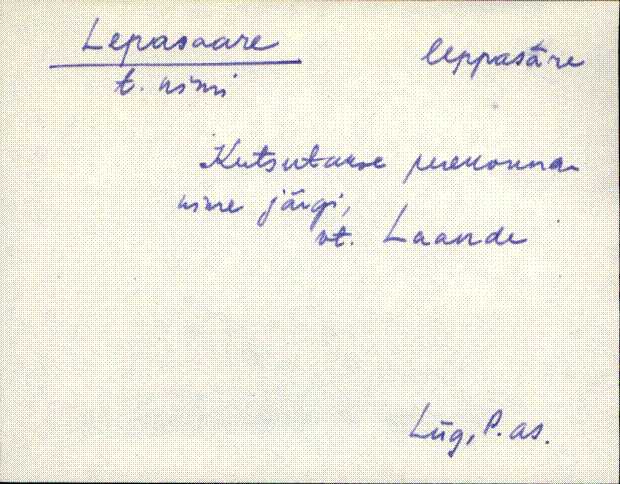 Lepasaare leppasāre
t. nimi
Kutsutakse perekonna-
nime järgi,
vt. Laande
Lüg, P. as.